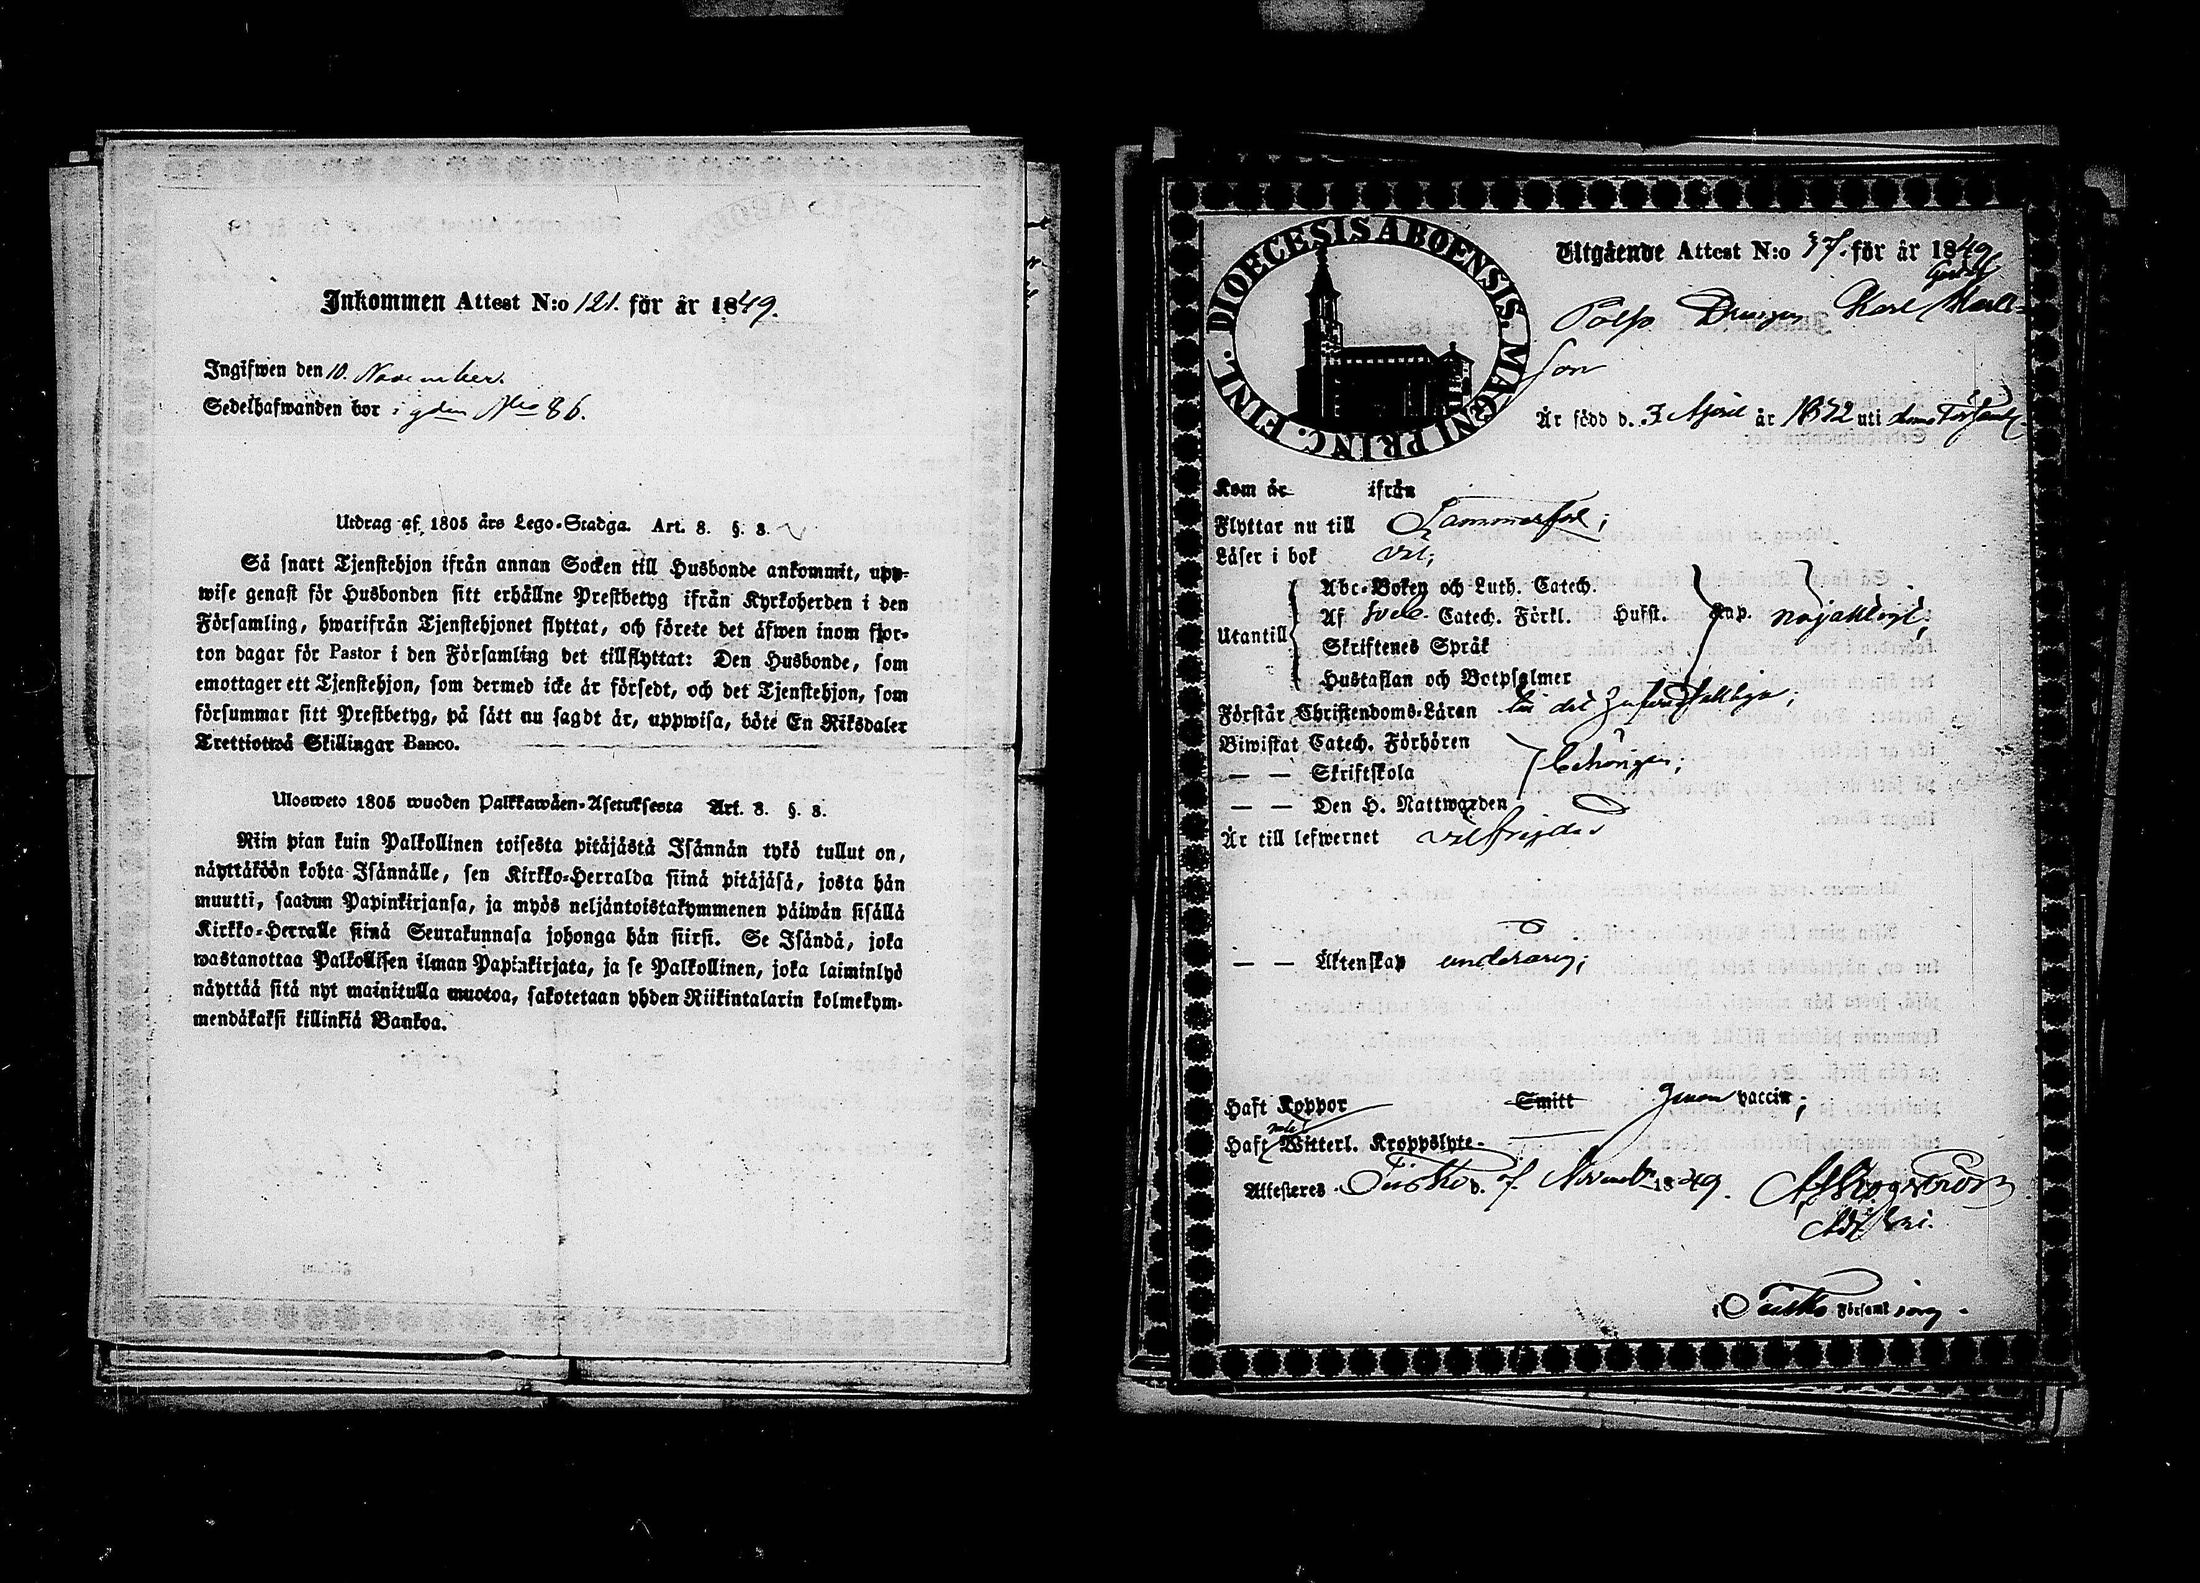 Inkommen Attest N:o 121. för år 1849.
Ingifwen den 10. November.
Sedelhafwanden bor i gden No 86.
Utdrag af 1805 års Lego-Stadga. Art. 8. §. 8.
Så snart Tjenstehjon ifrån annan Socken till Husbonde ankommit, upp-
wise genast för Husbonden sitt erhållne Prestbetyg ifrån Kyrkoherden i den
Församling, hwarifrån Tjenstehjonet flyttat, och förete det äfwen inom fjor-
ton dagar för Pastor i den Församling det tillflyttat: Den Husbonde, som
emottager ett Tjenstehjon, som dermed icke är försedt, och det Tjenstehjon, som
försummar sitt Prestbetyg, på sätt nu sagdt är, uppwisa, böte En Riksdaler
Trettiotwå Skillingar Banco.
Ulosweto 1805 wuoden Palkkawäen-Asetuksesta Art. 8. §. 8.
Niin pian kuin Palkollinen toisesta pitäjästä Isännän tykö tullut on,
näyttäköön kohta Isännälle, sen Kirkko-Herralda siinä pitäjäsä, josta hän
muutti, saadun Papinkirjansa, ja myös neljäntoistakymmenen päiwän sisällä
Kirkko-Herralle siinä Seurakunnasa johonga hän siirsi. Se Isändä, joka
wastanottaa Palkollisen ilman Papinkirjata, ja se Palkollinen, joka laiminlyö
näyttää sitä nyt mainitulla muotoa, sakotetaan yhden Riikintalarin kolmekym-
mendäkaksi killinkiä Bankoa.
DIOECESIS ABOENSIS. MAGNI PRINC. FINL.
Utgående Attest N:o 37. för år 1849
Gustaf
Drengen Karl Karls-
son
Är född d. 3 April år 1832 uti denna Församl.
Kom år ifrån
Flyttar nu till Tammerfors;
Läser i bok väl;
Utantill
Abc-Boken och Luth. Catech.
Af Sveb. Catech. Förkl. Husst. Kap. nöjaktligt;
Skriftenes Språk
Hustaflan och Botpsalmer
Förstår Christendoms-Läran
Biwistat Catech. Förhören
— — Skriftskola behörigen;
— — Den H. Nattwarden
Är till lefwernet välfrejdad
— — Äktenskap underårig;
Haft Koppor Smitt genom vaccin;
Haft Witterl. Kroppslyte
Attesteres Tusko d. 7. Novemb. 1849.
i Tusko Församling.